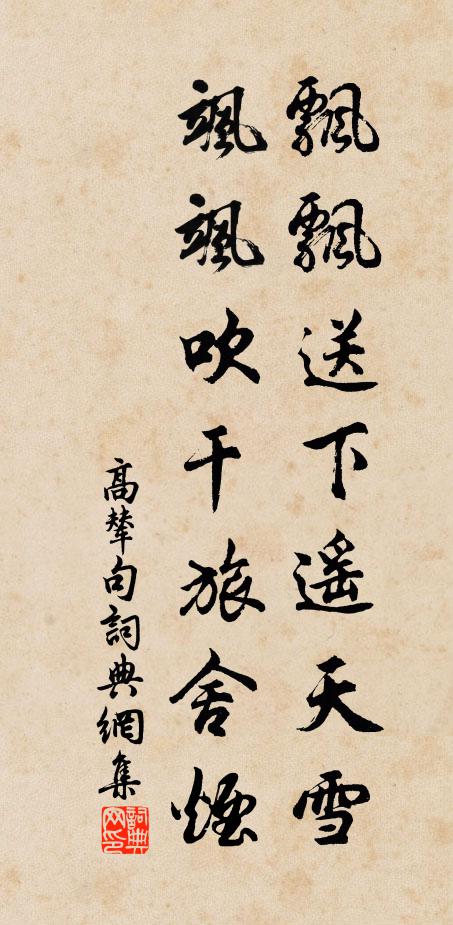 飄飄送下遥天雪
颯颯吹干旅舍煙
高輦句詞典網集
詞典网印